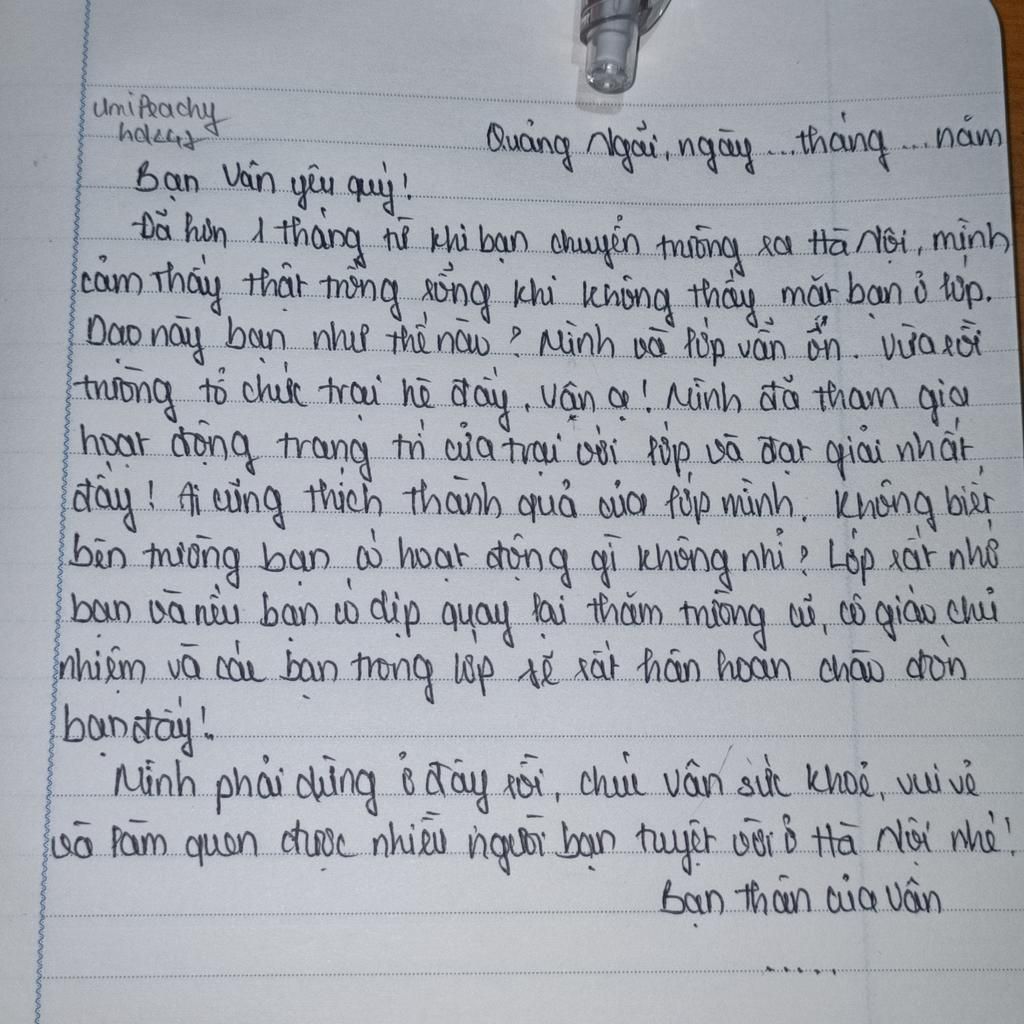 UmiPeachy
hd247
Quảng Ngãi, ngày ... tháng ... năm
Bạn Vân yêu quý!
Đã hơn 1 tháng từ khi bạn chuyển trường ra Hà Nội, mình
cảm thấy thật trống rỗng khi không thấy mặt bạn ở lớp.
Dạo này bạn như thế nào? Mình và lớp vẫn ổn. Vừa rồi
trường tổ chức trại hè đấy, Vân ạ! Mình đã tham gia
hoạt động trang trí cửa trại với lớp và đạt giải nhất
đấy! Ai cũng thích thành quả của lớp mình. Không biết
bên trường bạn có hoạt động gì không nhỉ? Lớp rất nhớ
bạn và nếu bạn có dịp quay lại thăm trường cũ, cô giáo chủ
nhiệm và các bạn trong lớp sẽ rất hân hoan chào đón
bạn đấy!
Mình phải dừng ở đây rồi, chúc Vân sức khoẻ, vui vẻ
và làm quen được nhiều người bạn tuyệt vời ở Hà Nội nhé!
Bạn thân của Vân
.....